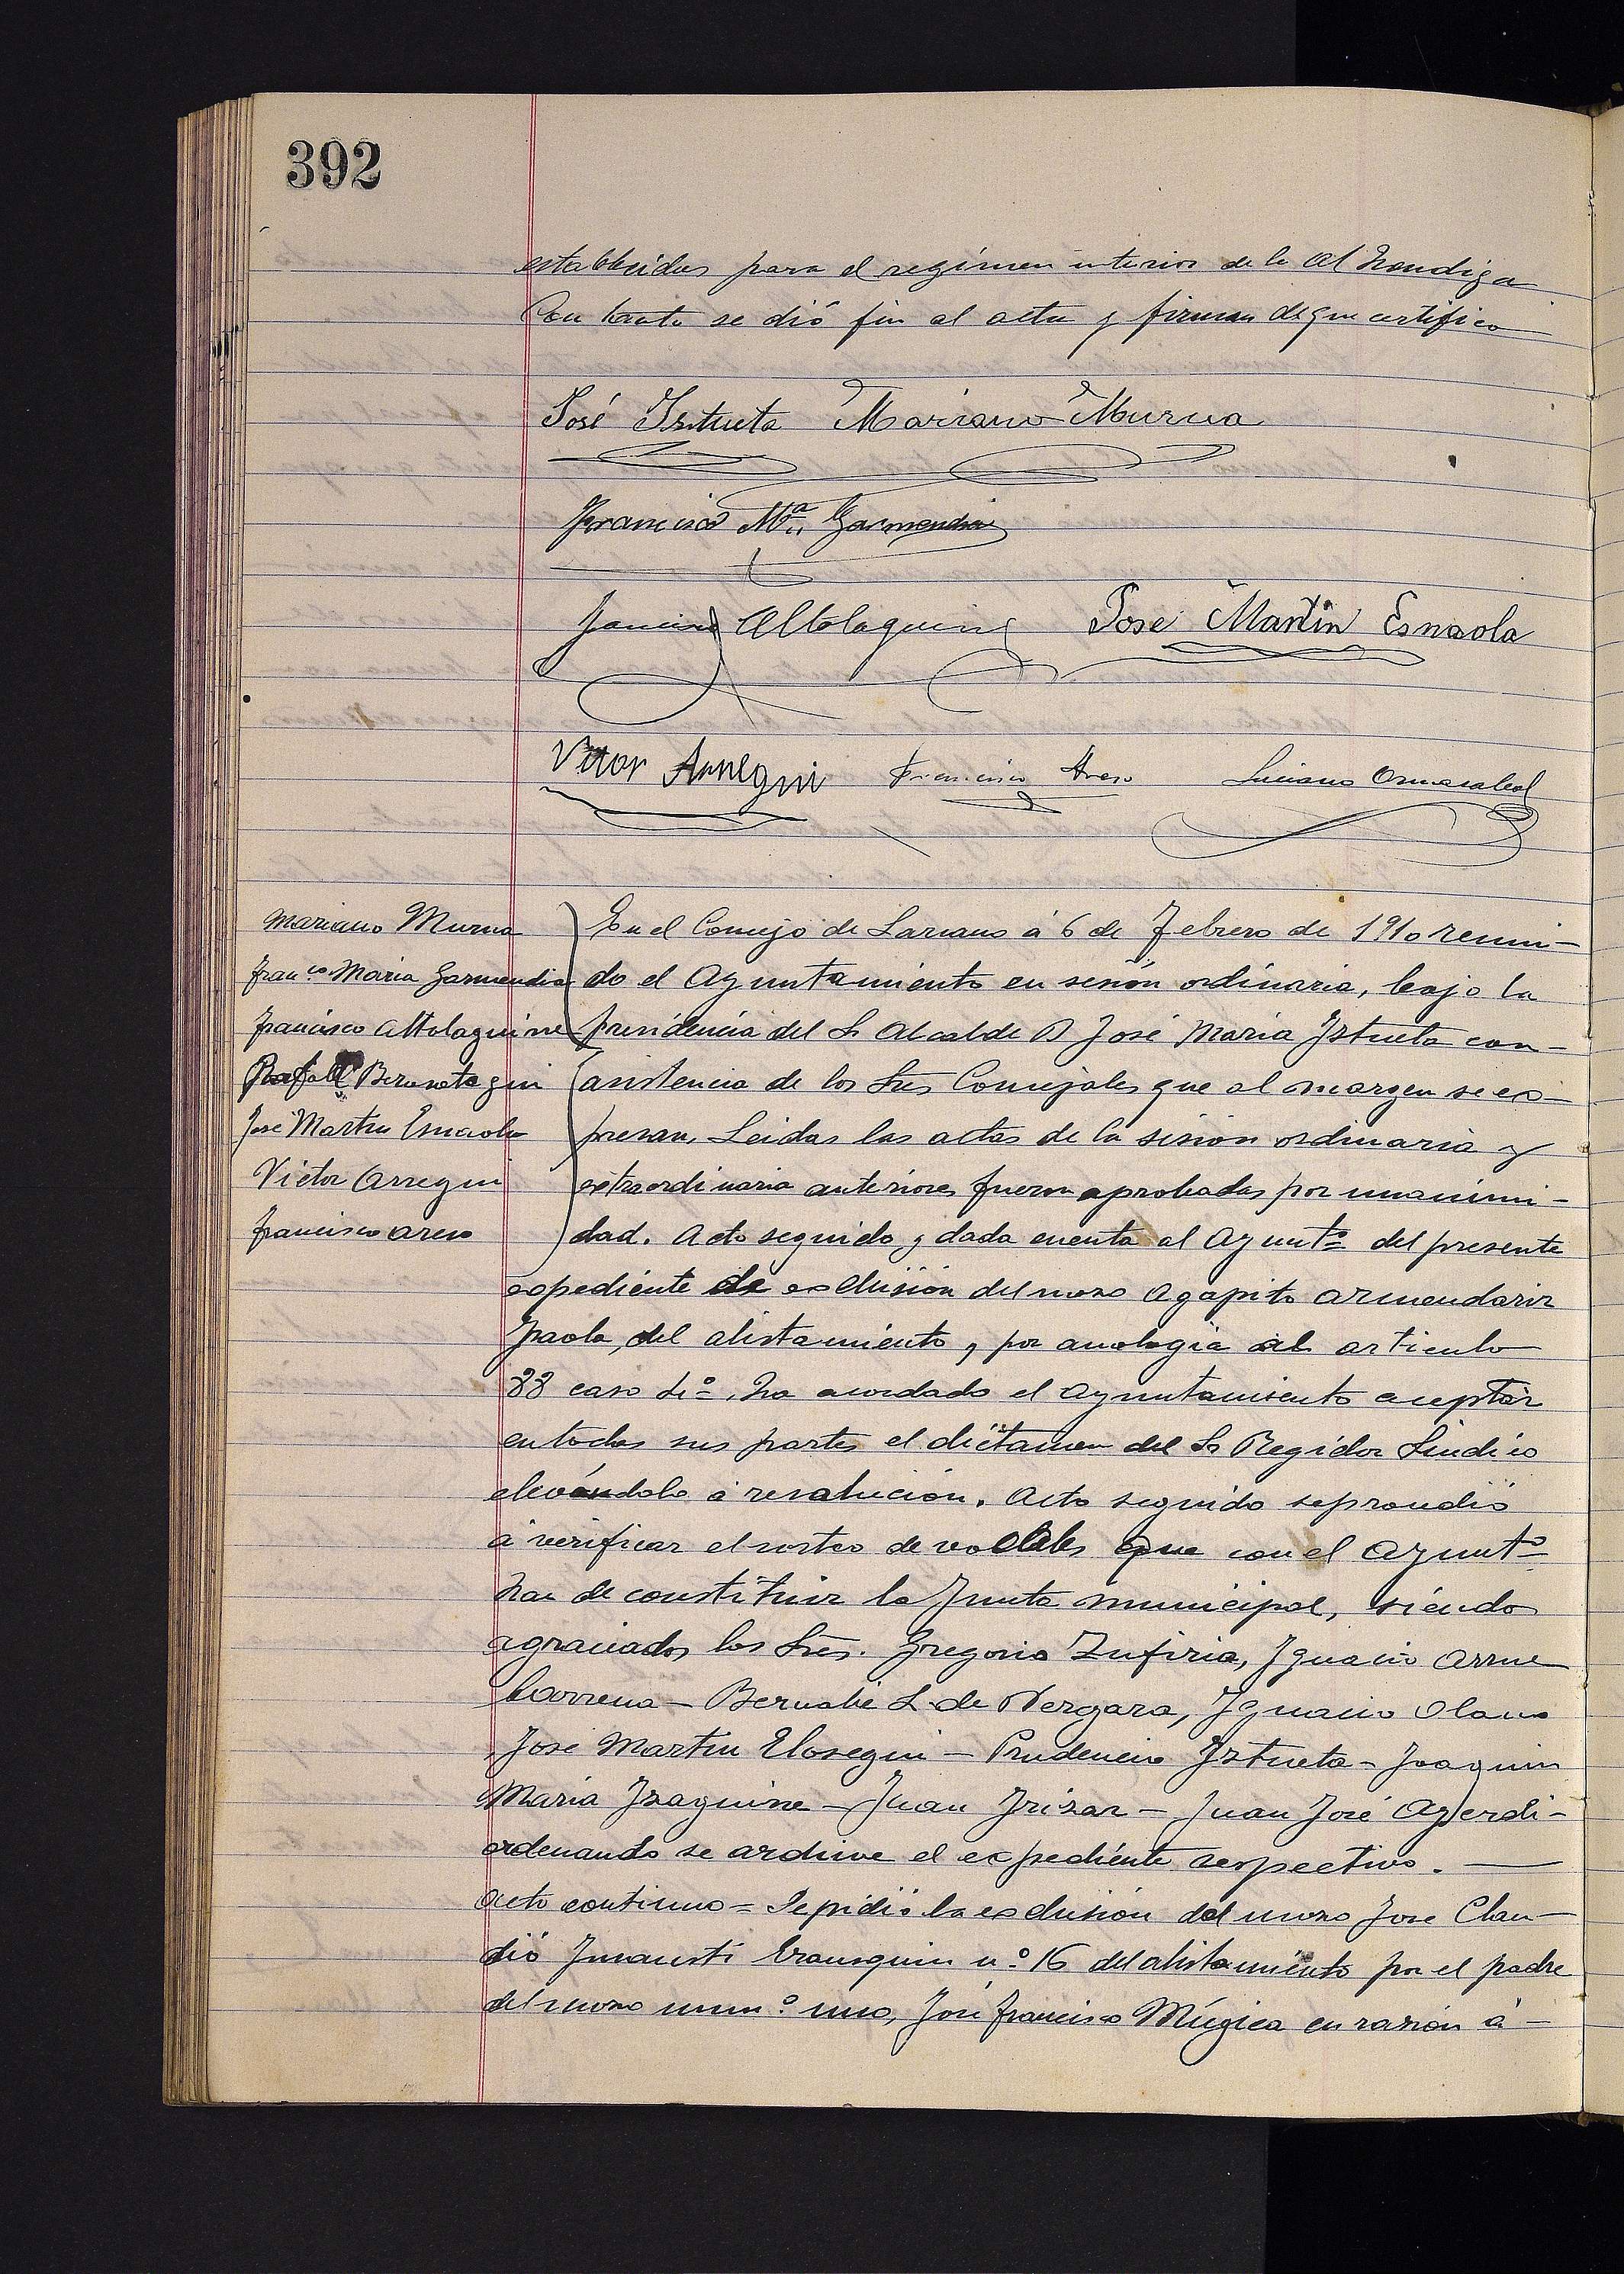 392
establecidas para el regimen interior de la Alhondiga
Con tanto se dió fin al acta y firman de que certifico
José Iztueta Mariano Murua
Francisco Mª Garmendia
Francisco Altolaguirre José Martin Esnaola
Vitor Arregui Francisco Areso Luciano Ormazabal
Mariano Murua
Franco Maria Garmendia
Francisco Altolaguirre
Rafael Berasategui
José Martin Esnaola
Victor Arregui
Francisco Areso
En el Concejo de Lazcano á 6 de Febrero de 1910 reuni-
do el Ayuntamiento en sesión ordinaria, bajo la
presidencia del Sr Alcalde D José Maria Iztueta con-
asistencia de los Sres Concejales que al margen se ex-
presan. Leidas las actas de la sesión ordinaria y
extraordinaria anteriores fueron aprobadas por unanimi-
dad. Acto seguido y dada cuenta al Ayuntº del presente
expediente de exclusión del mozo Agapito Armendariz
del alistamiento y por analogia al articulo
88 caso ha acordado el Ayuntamiento aceptar
en todas sus partes el dictamen del Sr Regidor Sindico
elevándolo á resolución. Acto seguido se procedió
á verificar el sorteo de vocales que con el Ayuntº
han de constituir la Junta municipal, siendo
agraciados los Sres. Gregorio Zufiria, Ignacio Arrue
barrena - Bernabé L. de Vergara, Ignacio Olano
José Martin Elosegui - Prudencio Iztueta - Joaquin
Maria Izaguirre - Juan Irizar - Juan José Ayerdi -
ordenando se archive el expediente respectivo. —
Acto continuo = Se pidió la exclusión del mozo José Clau-
dió Imausti Erausquin nº 16 del alistamiento por el padre
del mozo numº uno, José Francisco Múgica en razón á -